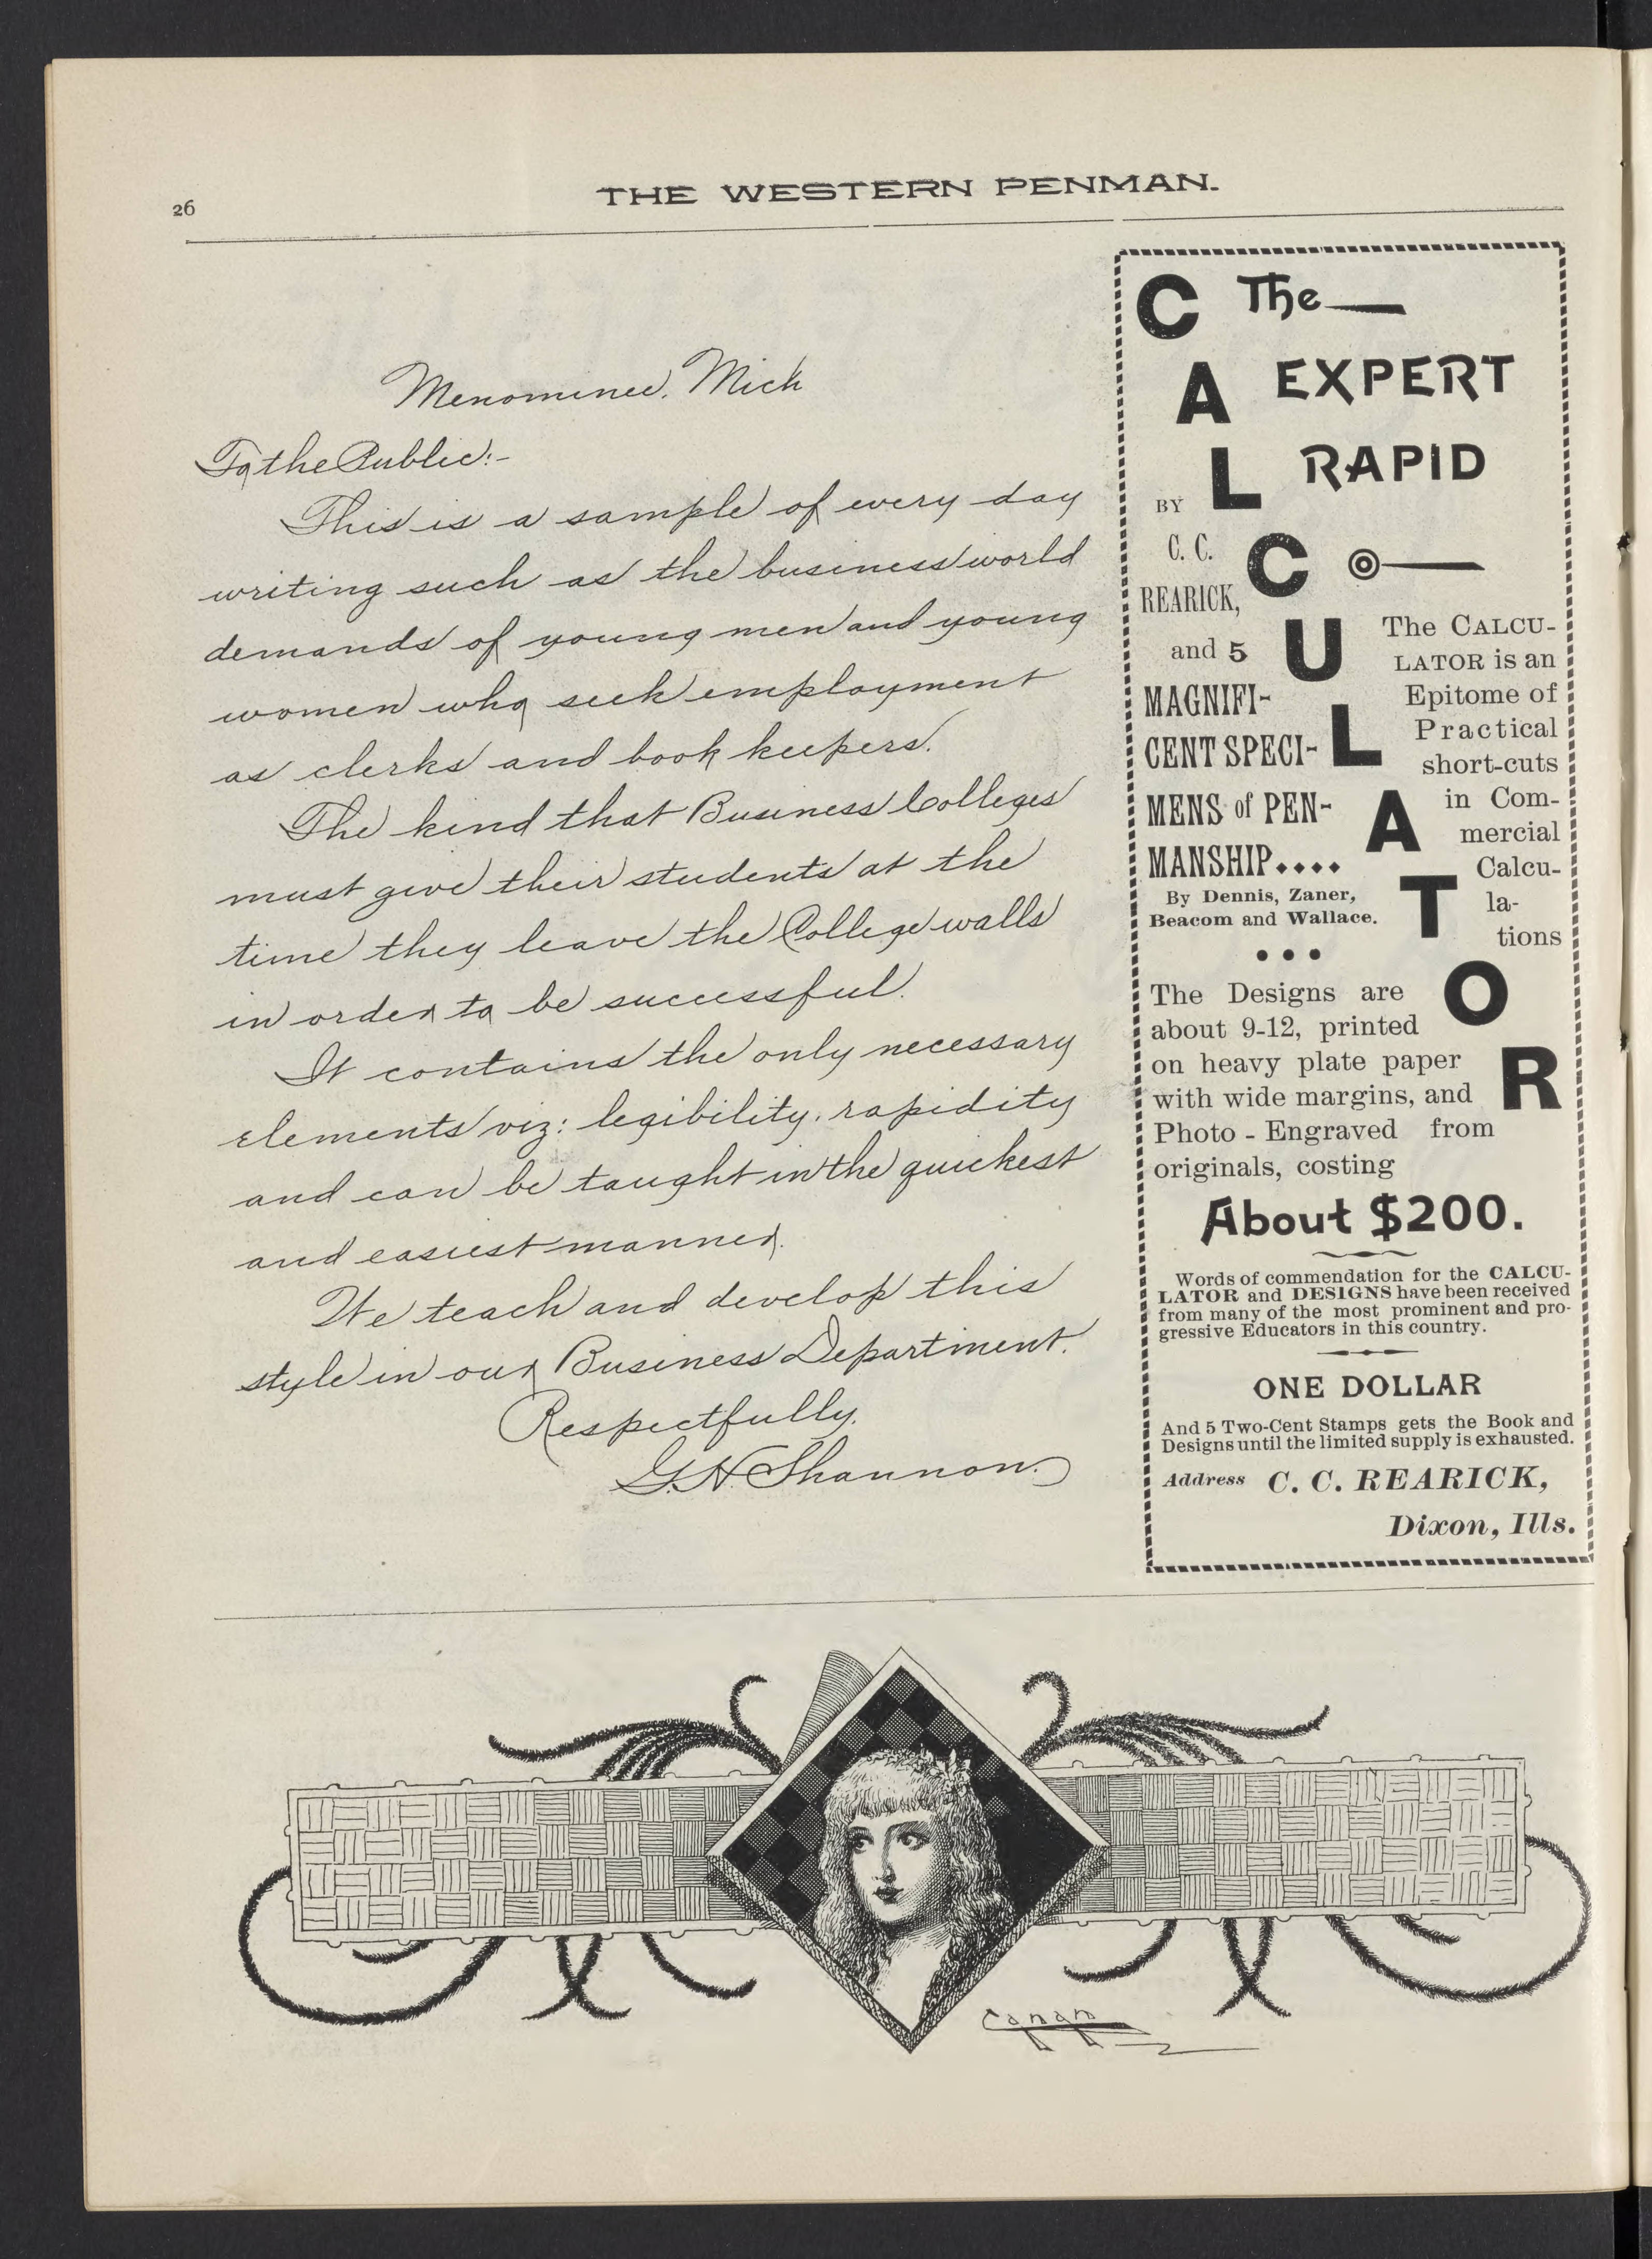 26
THE WESTERN PENMAN.
Menominee, Mich
To the Public:-
This is a sample of every day
writing such as the business world
demands of young men and young
women who seek employment
as clerks and book keepers.
The kind that Business Colleges
must give their students at the
time they leave the College walls
in order to be successful.
It contains the only necessary
elements viz: legibility, rapidity
and can be taught in the quickest
and easiest manner.
We teach and develop this
style in our Business Department.
Respectfully,
G.N. Shannon.
The
EXPERT
RAPID
CALCULATOR
BY
C. C.
REARICK,
and 5
MAGNIFI-
CENT SPECI-
MENS of PEN-
MANSHIP....
By Dennis, Zaner,
Beacom and Wallace.
The CALCU-
LATOR is an
Epitome of
Practical
short-cuts
in Com-
mercial
Calcu-
la-
tions
The Designs are
about 9-12, printed
on heavy plate paper
with wide margins, and
Photo - Engraved from
originals, costing
About $200.
Words of commendation for the CALCU-
LATOR and DESIGNS have been received
from many of the most prominent and pro-
gressive Educators in this country.
ONE DOLLAR
And 5 Two-Cent Stamps gets the Book and
Designs until the limited supply is exhausted.
Address C. C. REARICK,
Dixon, Ills.
Canan